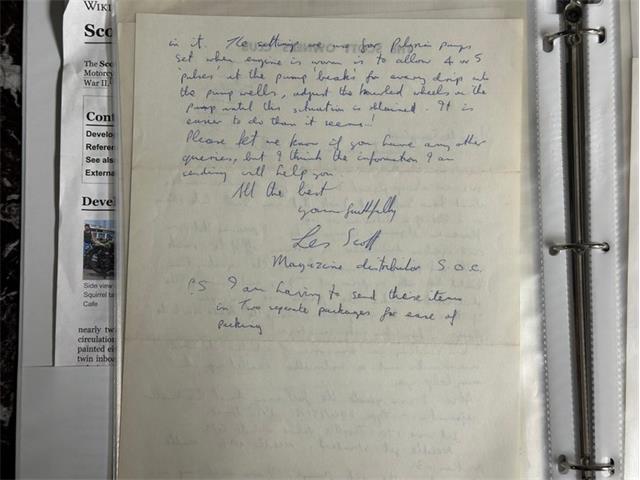 WIKI
Sco
The Sco
Motorcy
War II.
Cont
Develo
Referen
See als
Externa
Devel
Side view
Squirrel ta
Cafe
nearly tw
circulation
painted ei
twin inboa
in it. The settings we use for Pilgrim pumps
set when engine is warm is to allow 4 or 5
'pulses' at the pump 'beaks' for every drip into
the pump wells, adjust the knurled wheels on the
pump until this situation is obtained. It is
easier to do than it seems!
Please let me know if you have any other
queries, but I think the information I am
sending will help you.
All the best
yours faithfully
Les Scott
Magazine distributor S.O.C.
P.S I am having to send these items
in two separate packages for ease of
packing